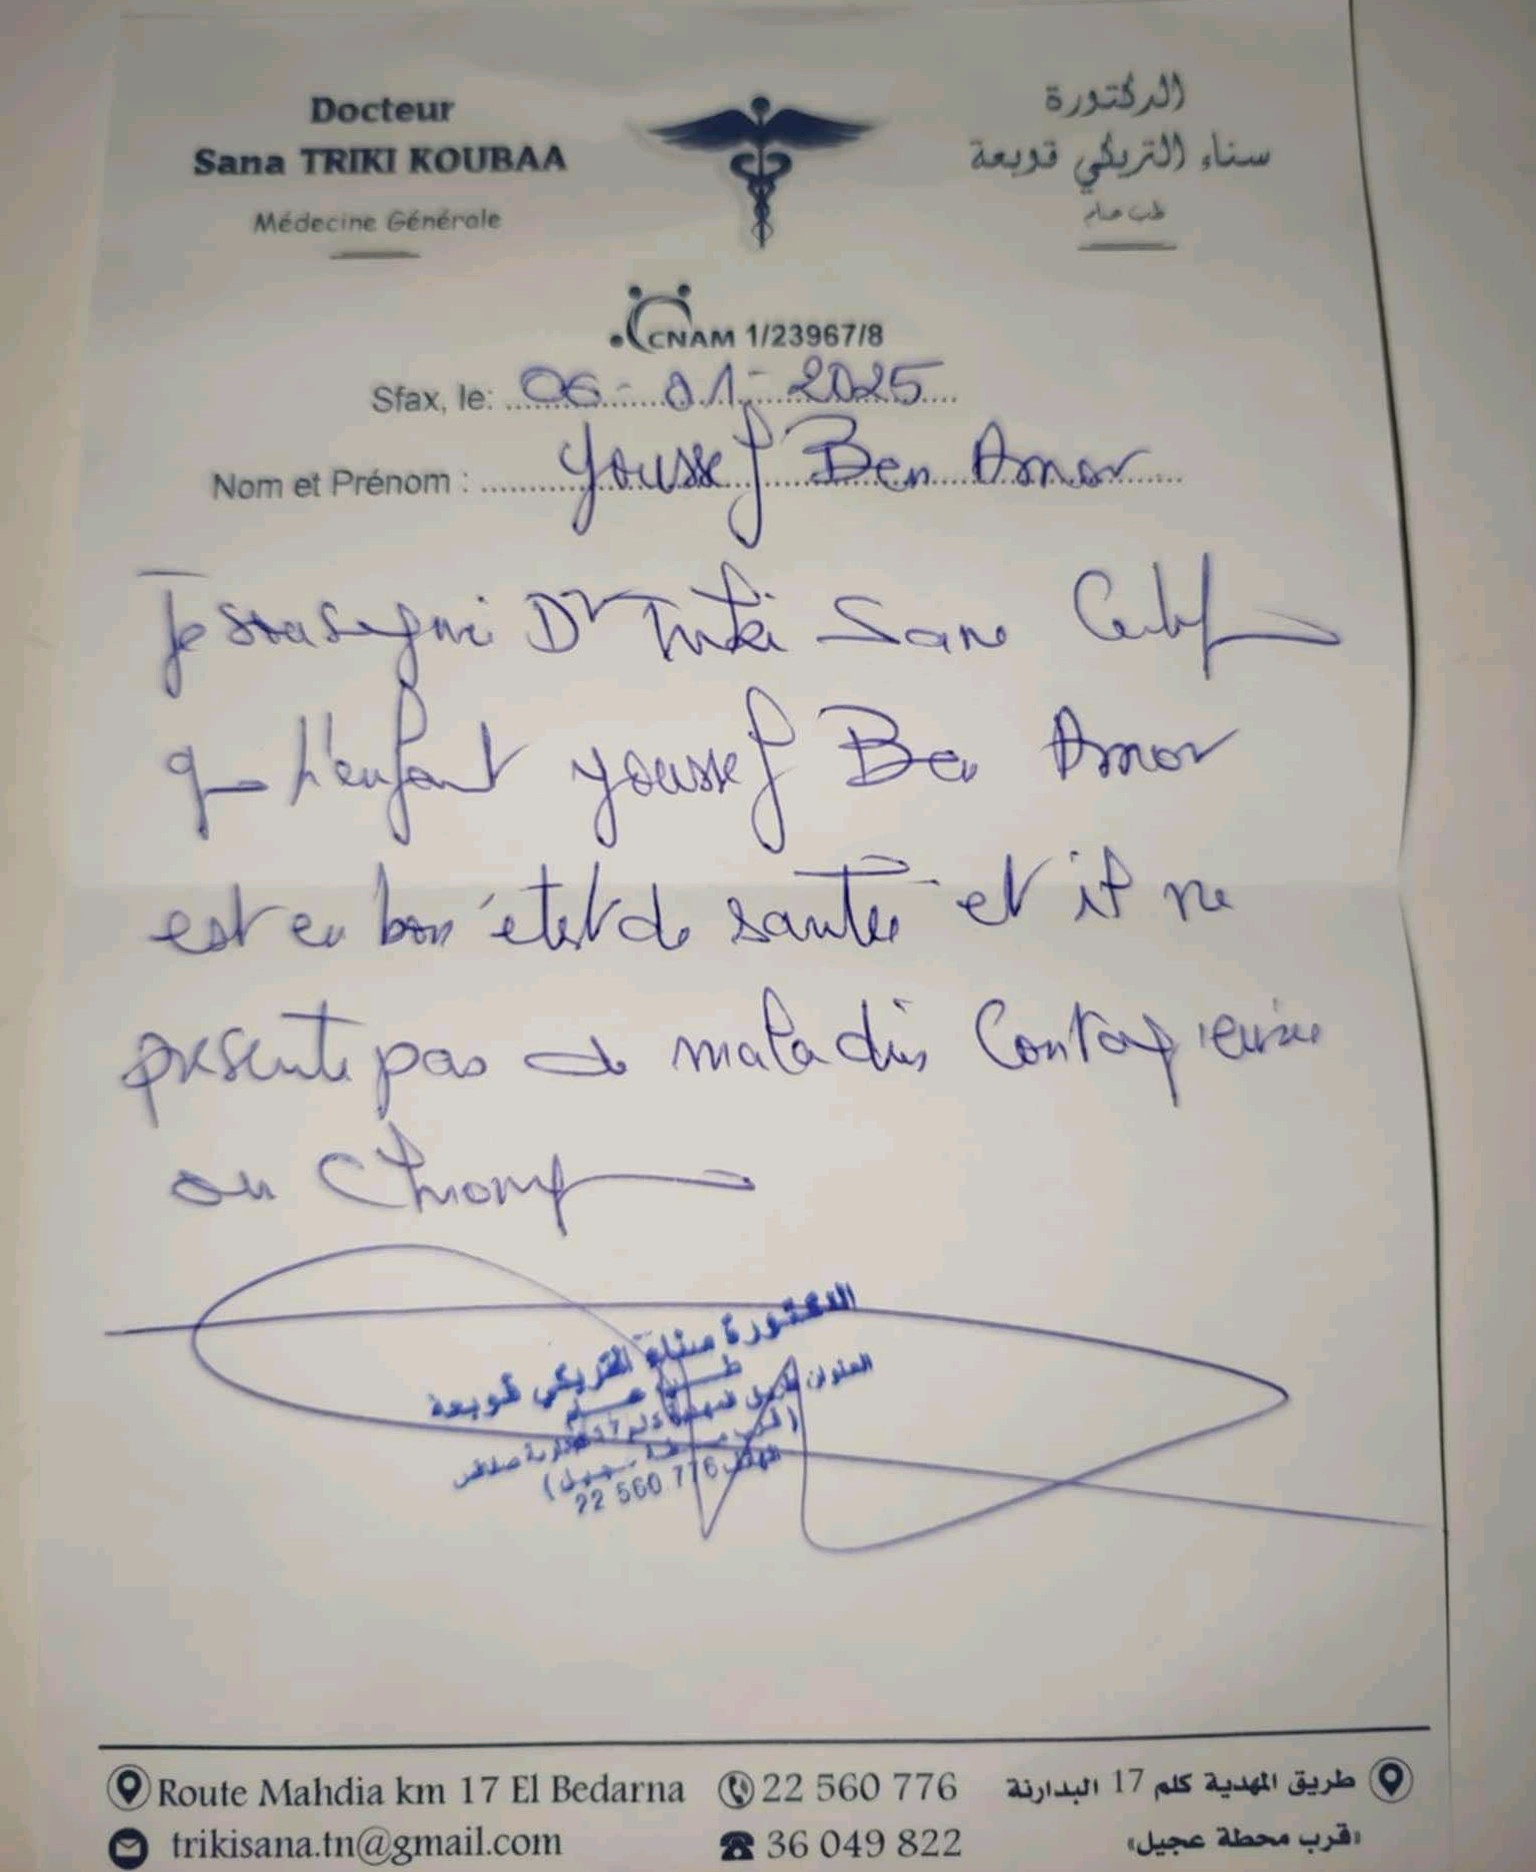 Docteur
Sana TRIKI KOUBAA
Médecine Générale
الدكتورة
سناء التريكي قوبعة
طب عام
CNAM 1/23967/8
Sfax, le: 06-01-2025
Nom et Prénom : Youssef Ben Amor
Je soussigné Dr Triki Sana Certifie
que l'enfant Youssef Ben Amor
est en bon état de santé et il ne
présente pas de maladies Contagieuses
ou Chronique
الدكتورة سناء التريكي قوبعة
طب عام
العنوان طريق المهدية كلم 17 البدارنة صفاقس
(قرب محطة عجيل)
الهاتف 22 560 776
Route Mahdia km 17 El Bedarna
22 560 776
طريق المهدية كلم 17 البدارنة
trikisana.tn@gmail.com
36 049 822
«قرب محطة عجيل»